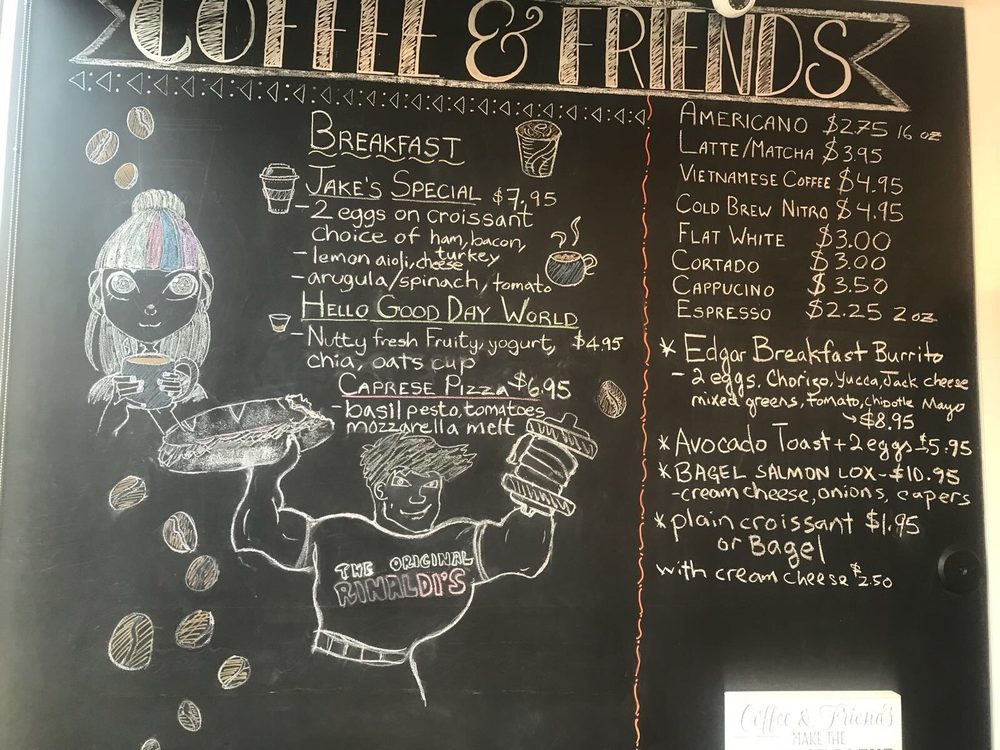 COFFEE & FRIENDS
BREAKFAST
JAKE'S SPECIAL $7.95
- 2 eggs on croissant
choice of ham, bacon,
turkey
- lemon aioli, cheese
- arugula/spinach, tomato
HELLO GOOD DAY WORLD
- Nutty fresh Fruity, yogurt, $4.95
chia, oats cup
CAPRESE PIZZA $6.95
- basil pesto, tomatoes
mozzarella melt
THE ORIGINAL
RINALDI'S
AMERICANO $2.75 16 oz
LATTE/MATCHA $3.95
VIETNAMESE COFFEE $4.95
COLD BREW NITRO $4.95
FLAT WHITE $3.00
CORTADO $3.00
CAPPUCINO $3.50
ESPRESSO $2.25 2 oz
* Edgar Breakfast Burrito
- 2 eggs, Chorizo, Yucca, Jack cheese
mixed greens, tomato, chipotle Mayo
→ $8.95
* Avocado Toast + 2 eggs $5.95
* BAGEL SALMON LOX - $10.95
- cream cheese, onions, capers
* plain croissant $1.95
or Bagel
with cream cheese $2.50
Coffee & Friends
MAKE THE